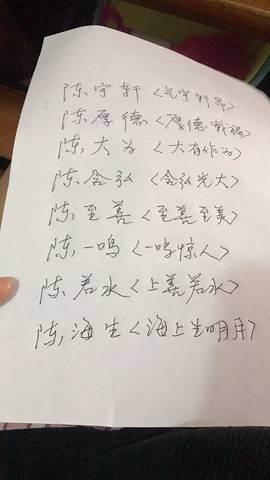 陈宇轩〈气宇轩昂〉
陈厚德〈厚德载福〉
陈大为〈大有作为〉
陈含弘〈含弘光大〉
陈至善〈至善至美〉
陈一鸣〈一鸣惊人〉
陈若水〈上善若水〉
陈海生〈海上生明月〉